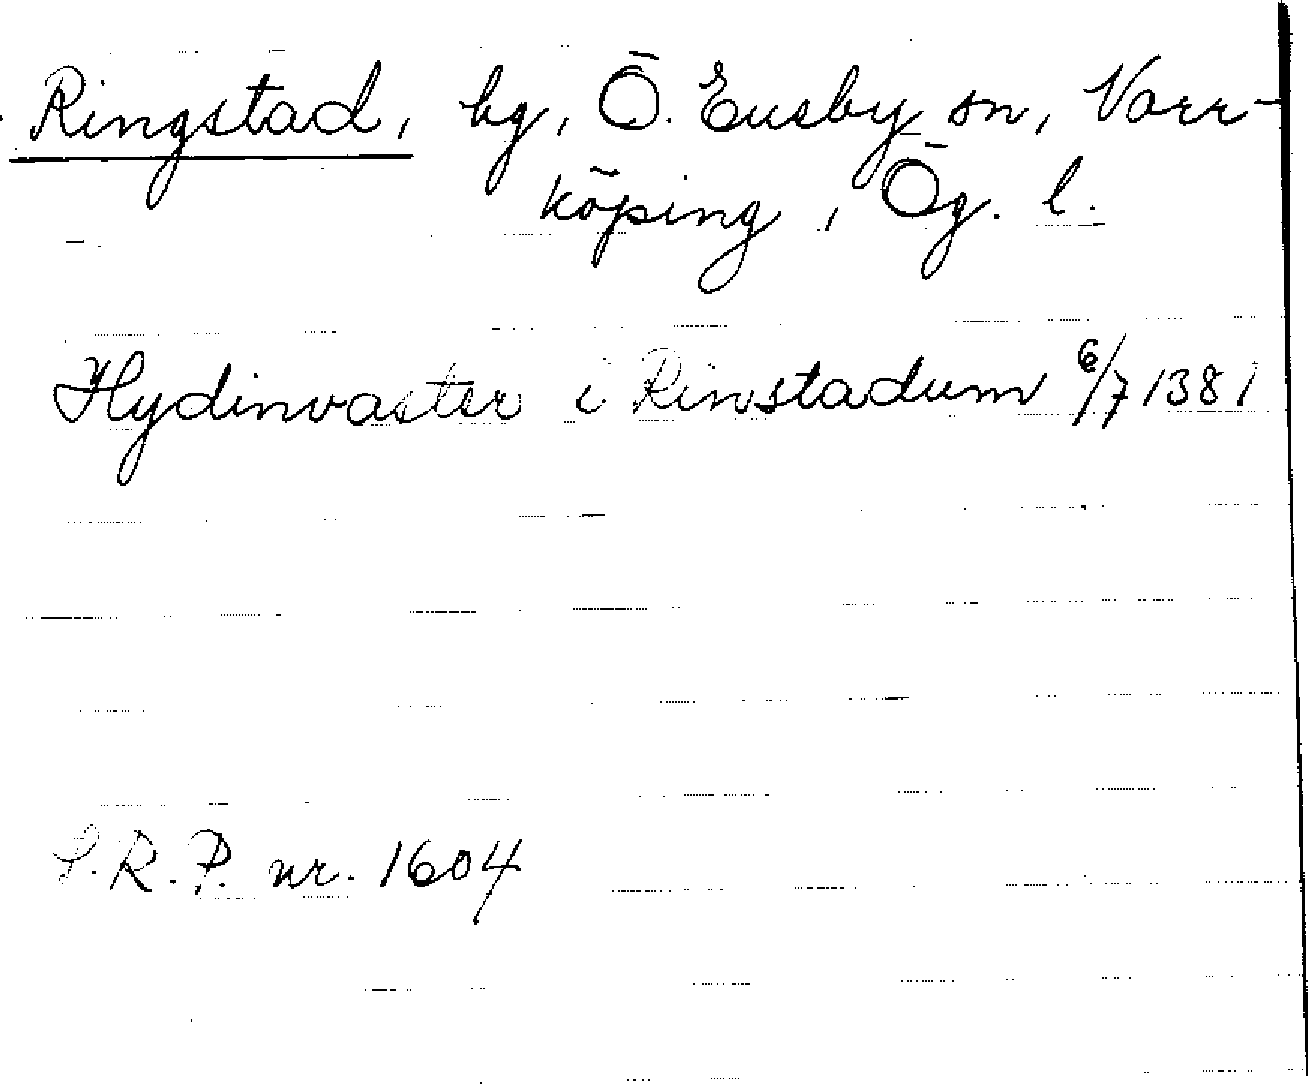 Ringstad, by, Ö. Eneby sn, Norr-
köping, Ög. l.
Hydinvaster i Rinstadum 6/7 1381
S.R.P. nr. 1604